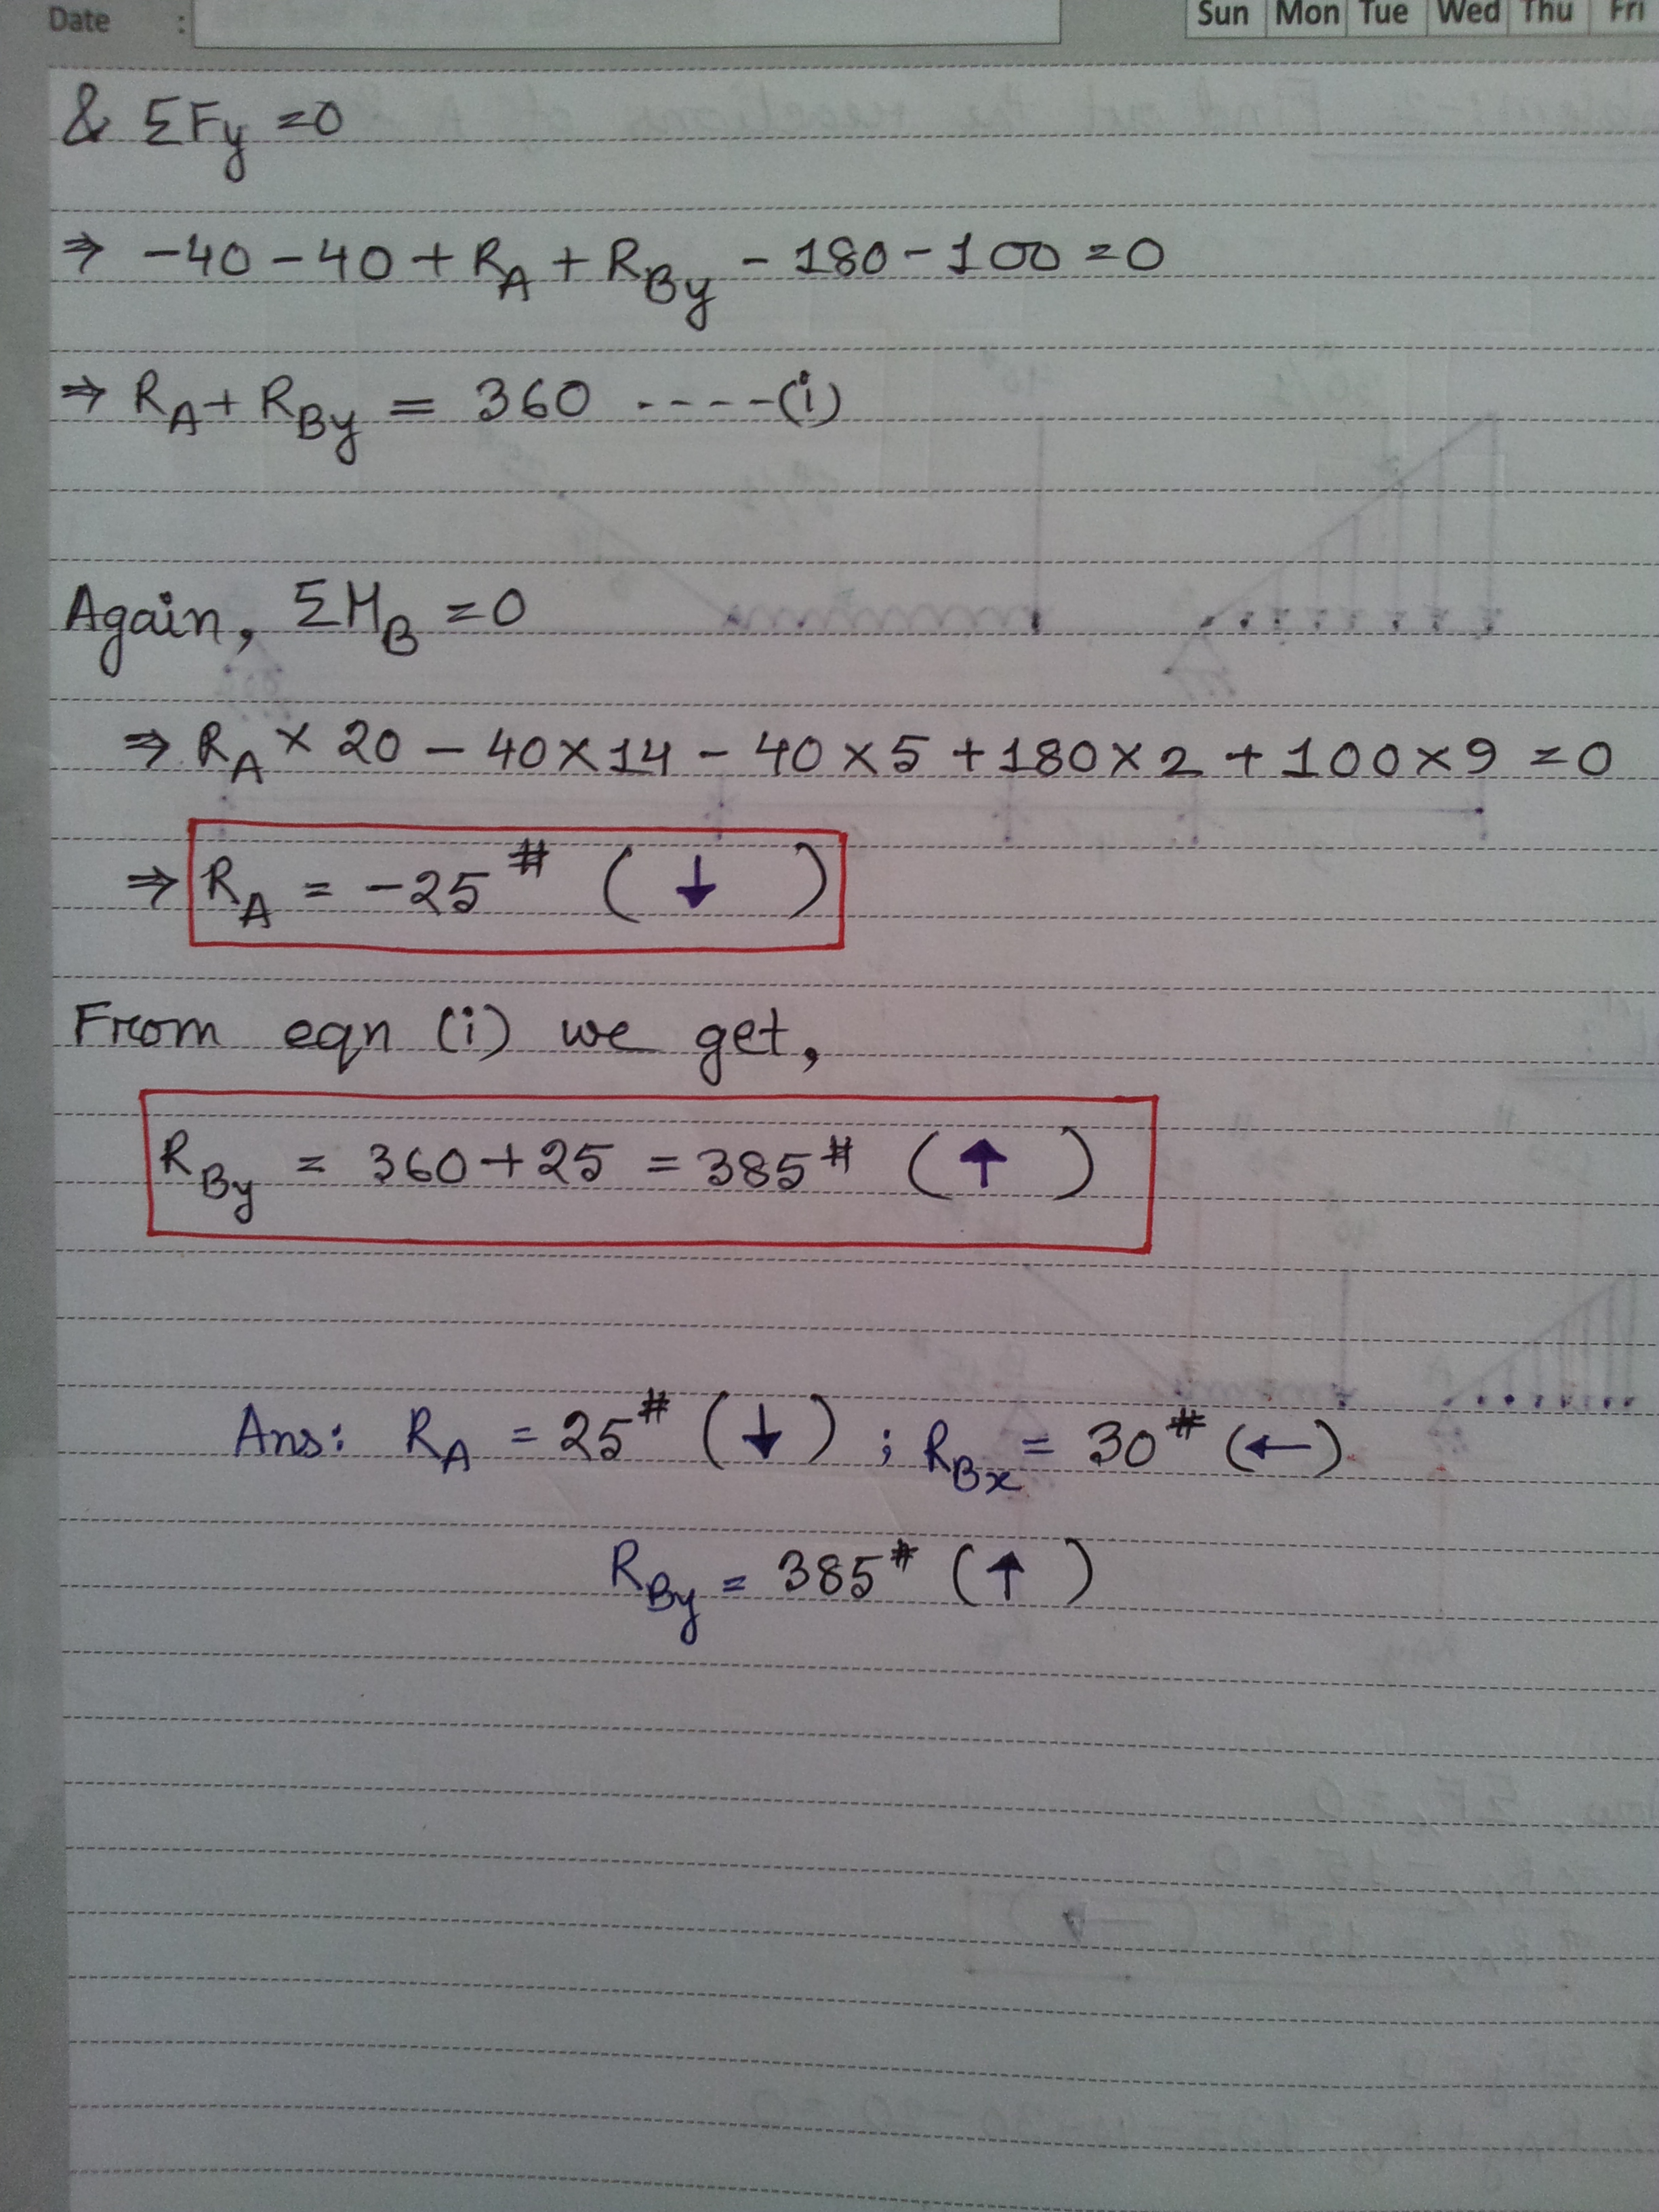 Date :
Sun Mon Tue Wed Thu Fri
& ΣFy =0
⇒ -40-40+R_A+R_By-180-100=0
⇒ R_A+R_By = 360 ----(i)
Again, ΣM_B=0
⇒ R_A×20-40×14-40×5+180×2+100×9=0
⇒ R_A = -25# (↓)
From eqn (i) we get,
R_By = 360+25 = 385# (↑)
Ans: R_A = 25# (↓) ; R_Bx = 30# (←)
R_By = 385# (↑)